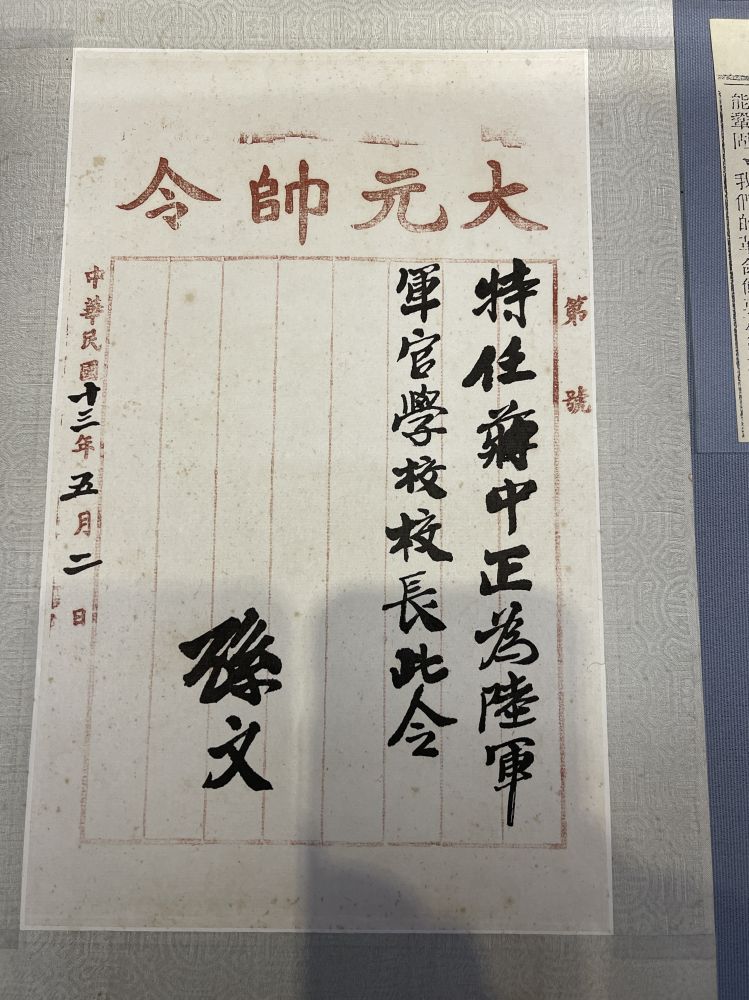 大元帥令
第 號
特任蔣中正為陸軍
軍官學校校長此令
孫文
中華民國十三年五月二日
能鞏固、我們的革命